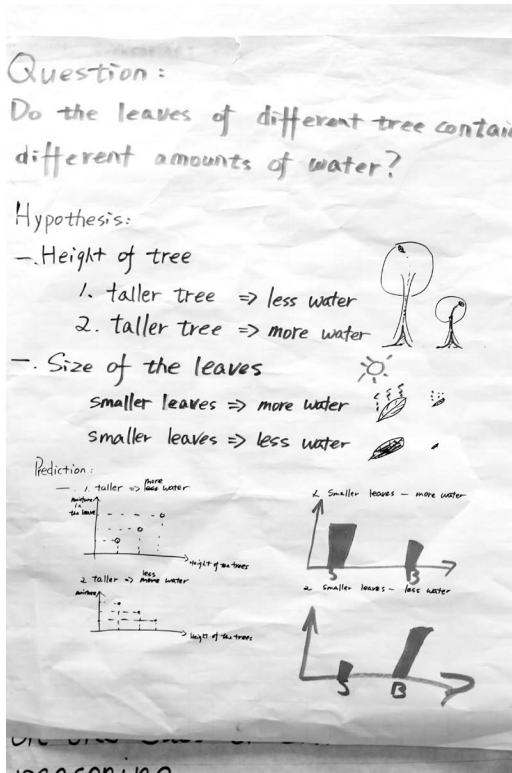 Question:
Do the leaves of different tree contai
different amounts of water?
Hypothesis:
一. Height of tree
1. taller tree => less water
2. taller tree => more water
一. Size of the leaves
smaller leaves => more water
smaller leaves => less water
Prediction:
一. 1. taller => more water
the leave
Height of the trees
2. taller => less water
moisture
Height of the trees
1. Smaller leaves - more water
S B
2. smaller leaves - less water
S B